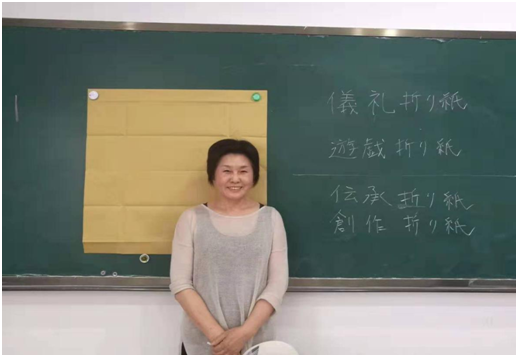 儀礼折り紙
遊戯折り紙
伝承折り紙
創作折り紙